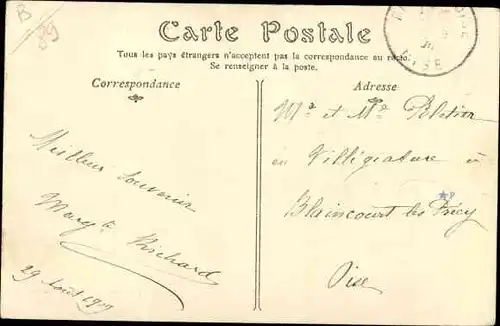 Carte Postale
Tous les pays étrangers n'acceptent pas la correspondance au recto.
Se renseigner à la poste.
Correspondance
Adresse
Meilleur Souvenir
Margte Richard
29 Août 1909
Mr et Me Pelletier
en Villégiature à
Blaincourt les Précy
Oise
OISE
B
89